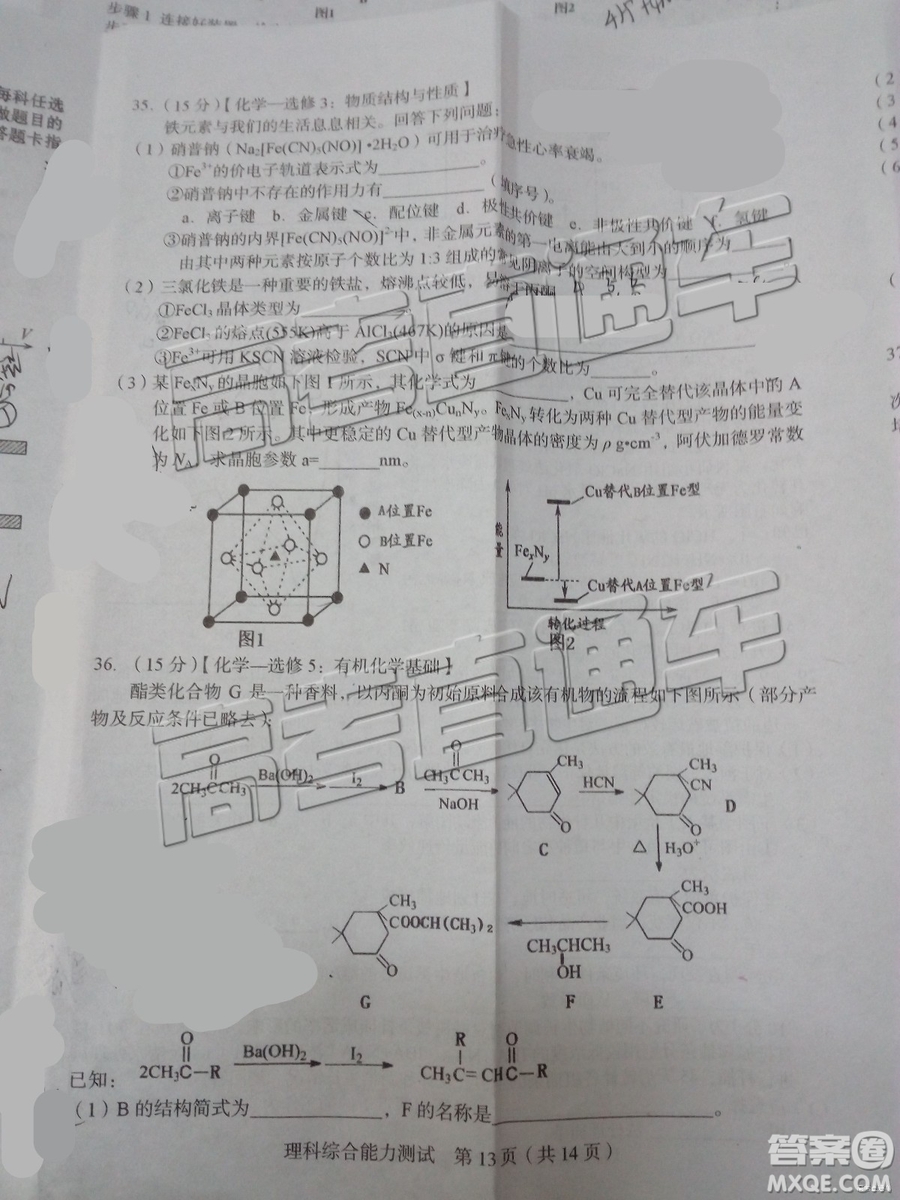 步骤1 连接好装置
图1
图2
每科任选
做题目的
答题卡指
35.（15分）【化学—选修3：物质结构与性质】
铁元素与我们的生活息息相关。回答下列问题：
（1）硝普钠（Na₂[Fe(CN)₅(NO)]•2H₂O）可用于治疗急性心率衰竭。
①Fe³⁺的价电子轨道表示式为__________。
②硝普钠中不存在的作用力有__________（填序号）。
a．离子键 b．金属键 c．配位键 d．极性共价键 e．非极性共价键 f．氢键
③硝普钠的内界[Fe(CN)₅(NO)]²⁻中，非金属元素的第一电离能由大到小的顺序为
由其中两种元素按原子个数比为1:3组成的常见阴离子的空间构型为
（2）三氯化铁是一种重要的铁盐，熔沸点较低，易溶于丙酮
①FeCl₃晶体类型为
②FeCl₃的熔点(555K)高于AlCl₃(467K)的原因是
③Fe³⁺可用KSCN溶液检验，SCN⁻中σ键和π键的个数比为______。
（3）某FeₓNᵧ的晶胞如下图1所示，其化学式为__________，Cu可完全替代该晶体中的A
位置Fe或B位置Fe，形成产物Fe(x-n)CuₙNᵧ。FeₓNᵧ转化为两种Cu替代型产物的能量变
化如下图2所示。其中更稳定的Cu替代型产物晶体的密度为ρ g•cm⁻³，阿伏加德罗常数
为Nₐ，求晶胞参数a=______nm。
A位置Fe
B位置Fe
N
图1
能量
Cu替代B位置Fe型
FeₓNᵧ
Cu替代A位置Fe型
转化过程
图2
36.（15分）【化学—选修5：有机化学基础】
酯类化合物G是一种香料，以丙酮为初始原料合成该有机物的流程如下图所示（部分产
物及反应条件已略去）：
O
2CH₃CCH₃ Ba(OH)₂ I₂ B
O
CH₃CCH₃
NaOH
CH₃
O
C
HCN
CH₃
CN
O
D
△ H₃O⁺
CH₃
COOH
O
E
CH₃CHCH₃
OH
F
CH₃
COOCH(CH₃)₂
O
G
已知：
O
2CH₃C—R Ba(OH)₂ I₂
R O
CH₃C=CHC—R
（1）B的结构简式为__________，F的名称是__________。
理科综合能力测试 第13页（共14页）
答案圈
MXQE.COM
高考直通车
高考直通车